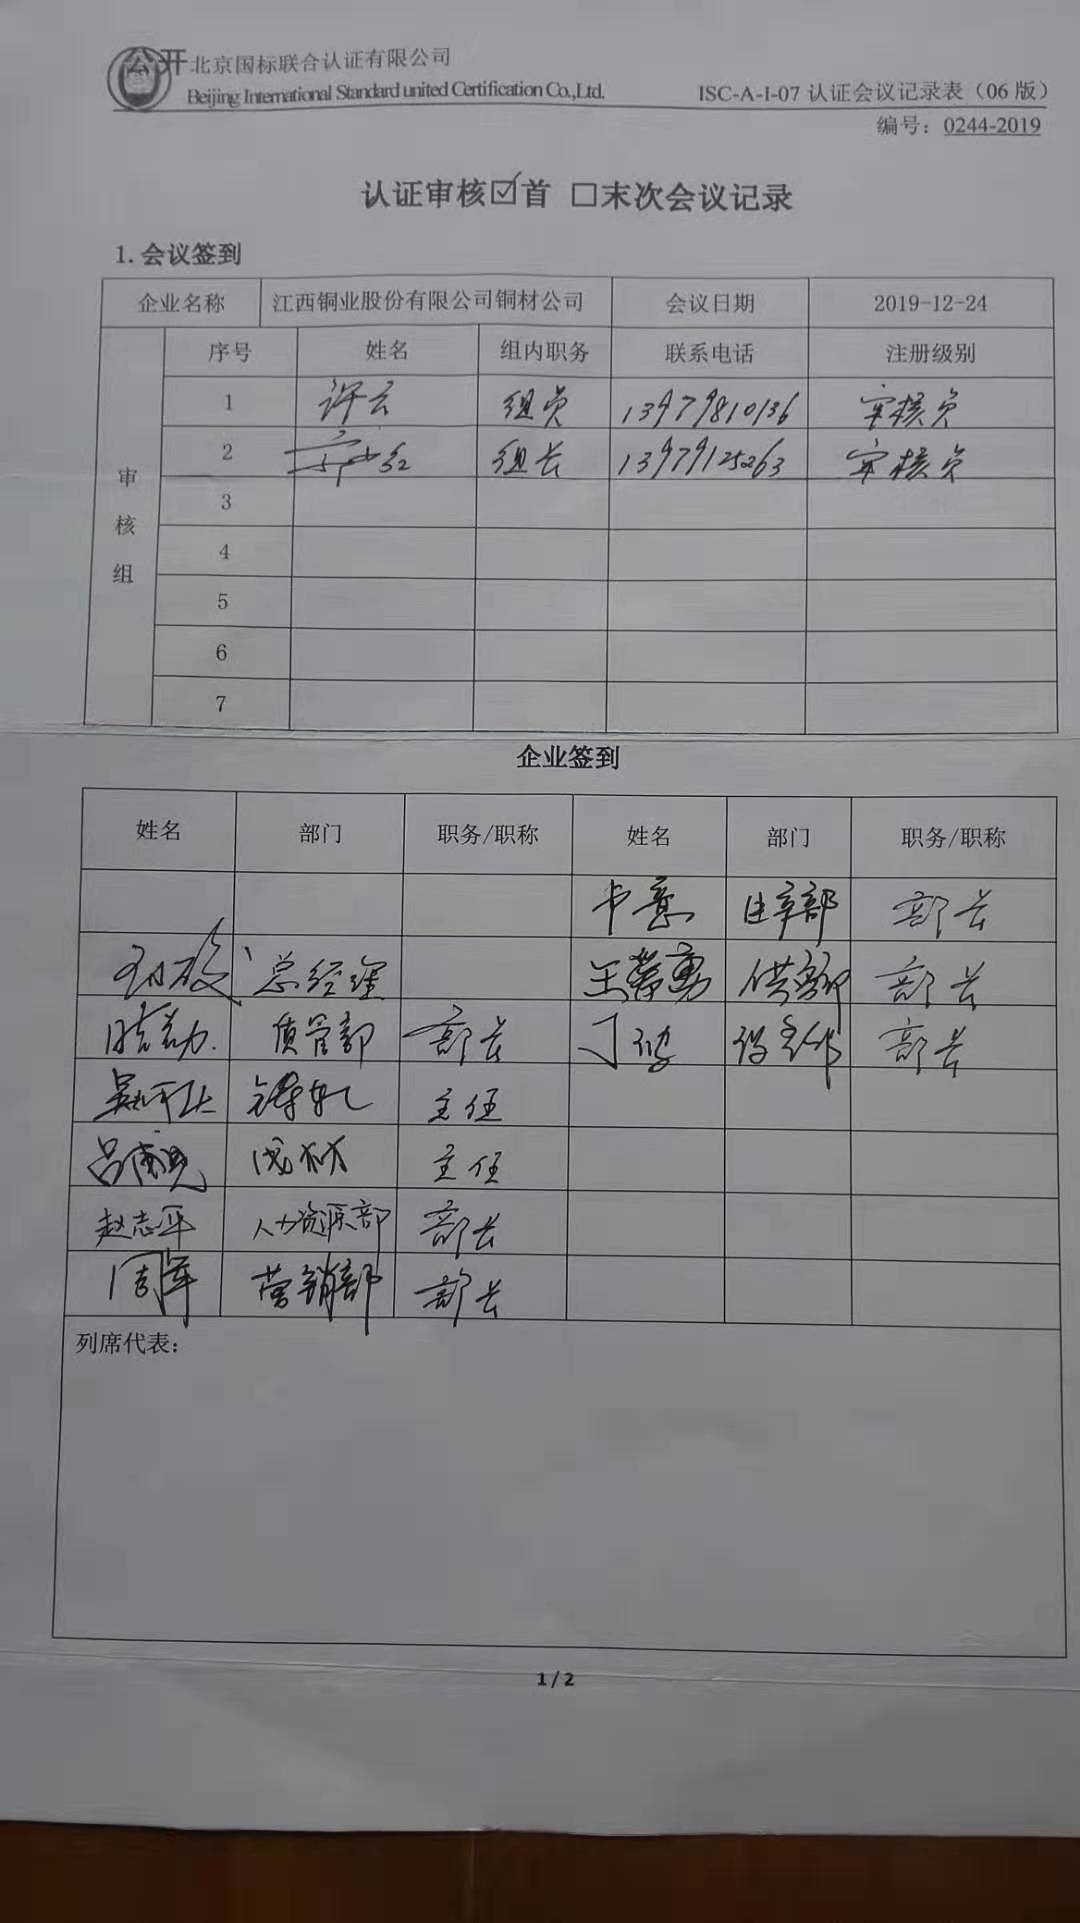 公开
北京国标联合认证有限公司
Beijing International Standard united Certification Co.,Ltd.
ISC-A-I-07 认证会议记录表（06 版）
编号：0244-2019
认证审核☑首 □末次会议记录
1. 会议签到
企业名称 江西铜业股份有限公司铜材公司 会议日期 2019-12-24
审核组
序号 姓名 组内职务 联系电话 注册级别
1 许云 组员 13979810136 审核员
2 组长 13979125263 审核员
3
4
5
6
7
企业签到
姓名 部门 职务/职称 姓名 部门 职务/职称
部长
总经理 王 部长
质管部 部长 丁 部长
吴 主任
吕 主任
赵志平 人力资源部 部长
周军 营销部 部长
列席代表：
1 / 2